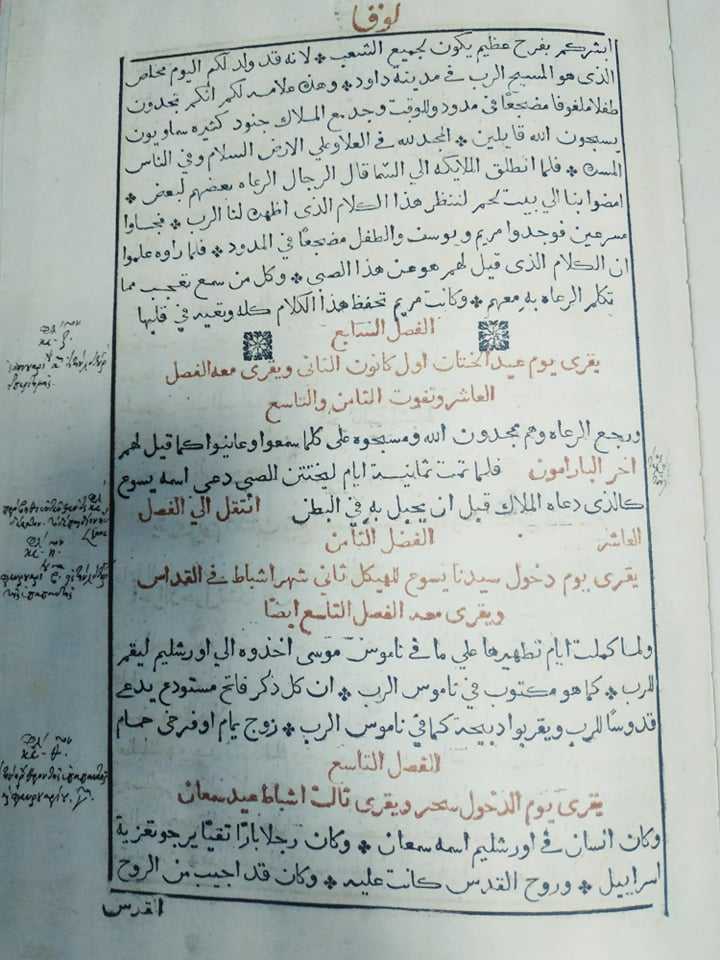 لوقا
ابشركم بفرح عظيم يكون لجميع الشعب ❖ لانه قد ولد لكم اليوم مخلص
الذى هو المسيح الرب في مدينة داود ❖ وهذه علامه لكم انكم تجدون
طفلا ملفوفا مضجعًا في مدود وللوقت وجد مع الملاك جنود كثيره سماويون
يسبحون الله قايلين ❖ المجد لله في العلا وعلي الارض السلام وفي الناس
المسره ❖ فلما انطلق الملايكه الي السما قال الرجال الرعاه بعضهم لبعض ❖
امضوا بنا الي بيت لحم لننظر هذا الكلام الذى اظهره لنا الرب ❖ فجاوا
مسرعين فوجدوا مريم ويوسف والطفل مضجعًا في المدود ❖ فلما راوه علموا
ان الكلام الذى قيل لهم هو عن هذا الصبي ❖ وكل من سمع تعجب مما
تكلم الرعاه به معهم ❖ وكانت مريم تحفظ هذا الكلام كله وتعيه في قلبها
الفصل السابع
يقرى يوم عيد الختان اول كانون الثانى ويقرى معه الفصل
العاشر وتفوت الثامن والتاسع
ورجع الرعاه وهم يمجدون الله ومسبحوه على كلما سمعوا وعاينوا كما قيل لهم
اخر البارامون فلما تمت ثمانية ايام ليختتن الصبي دعى اسمه يسوع
كالذى دعاه الملاك قبل ان يحبل به في البطن انتقل الي الفصل
العاشر الفصل الثامن
يقرى يوم دخول سيدنا يسوع للهيكل ثاني شهر اشباط في القداس
ويقرى معه الفصل التاسع ايضًا
ولما كملت ايام تطهيرها علي ما في ناموس موسى اخذوه الي اورشليم ليقم
للرب ❖ كما هو مكتوب في ناموس الرب ❖ ان كل ذكر فاتح مستودع يدعى
قدوسًا للرب ويقربوا دبيحة كما في ناموس الرب ❖ زوج يمام او فرخى حمام
الفصل التاسع
يقرى يوم الدخول سحر ويقرى ثالث اشباط عيد سمعان
وكان انسان في اورشليم اسمه سمعان ❖ وكان رجلا بارًا تقيًا يرجو تعزية
اسراييل ❖ وروح القدس كانت عليه ❖ وكان قد اجيب من الروح
القدس